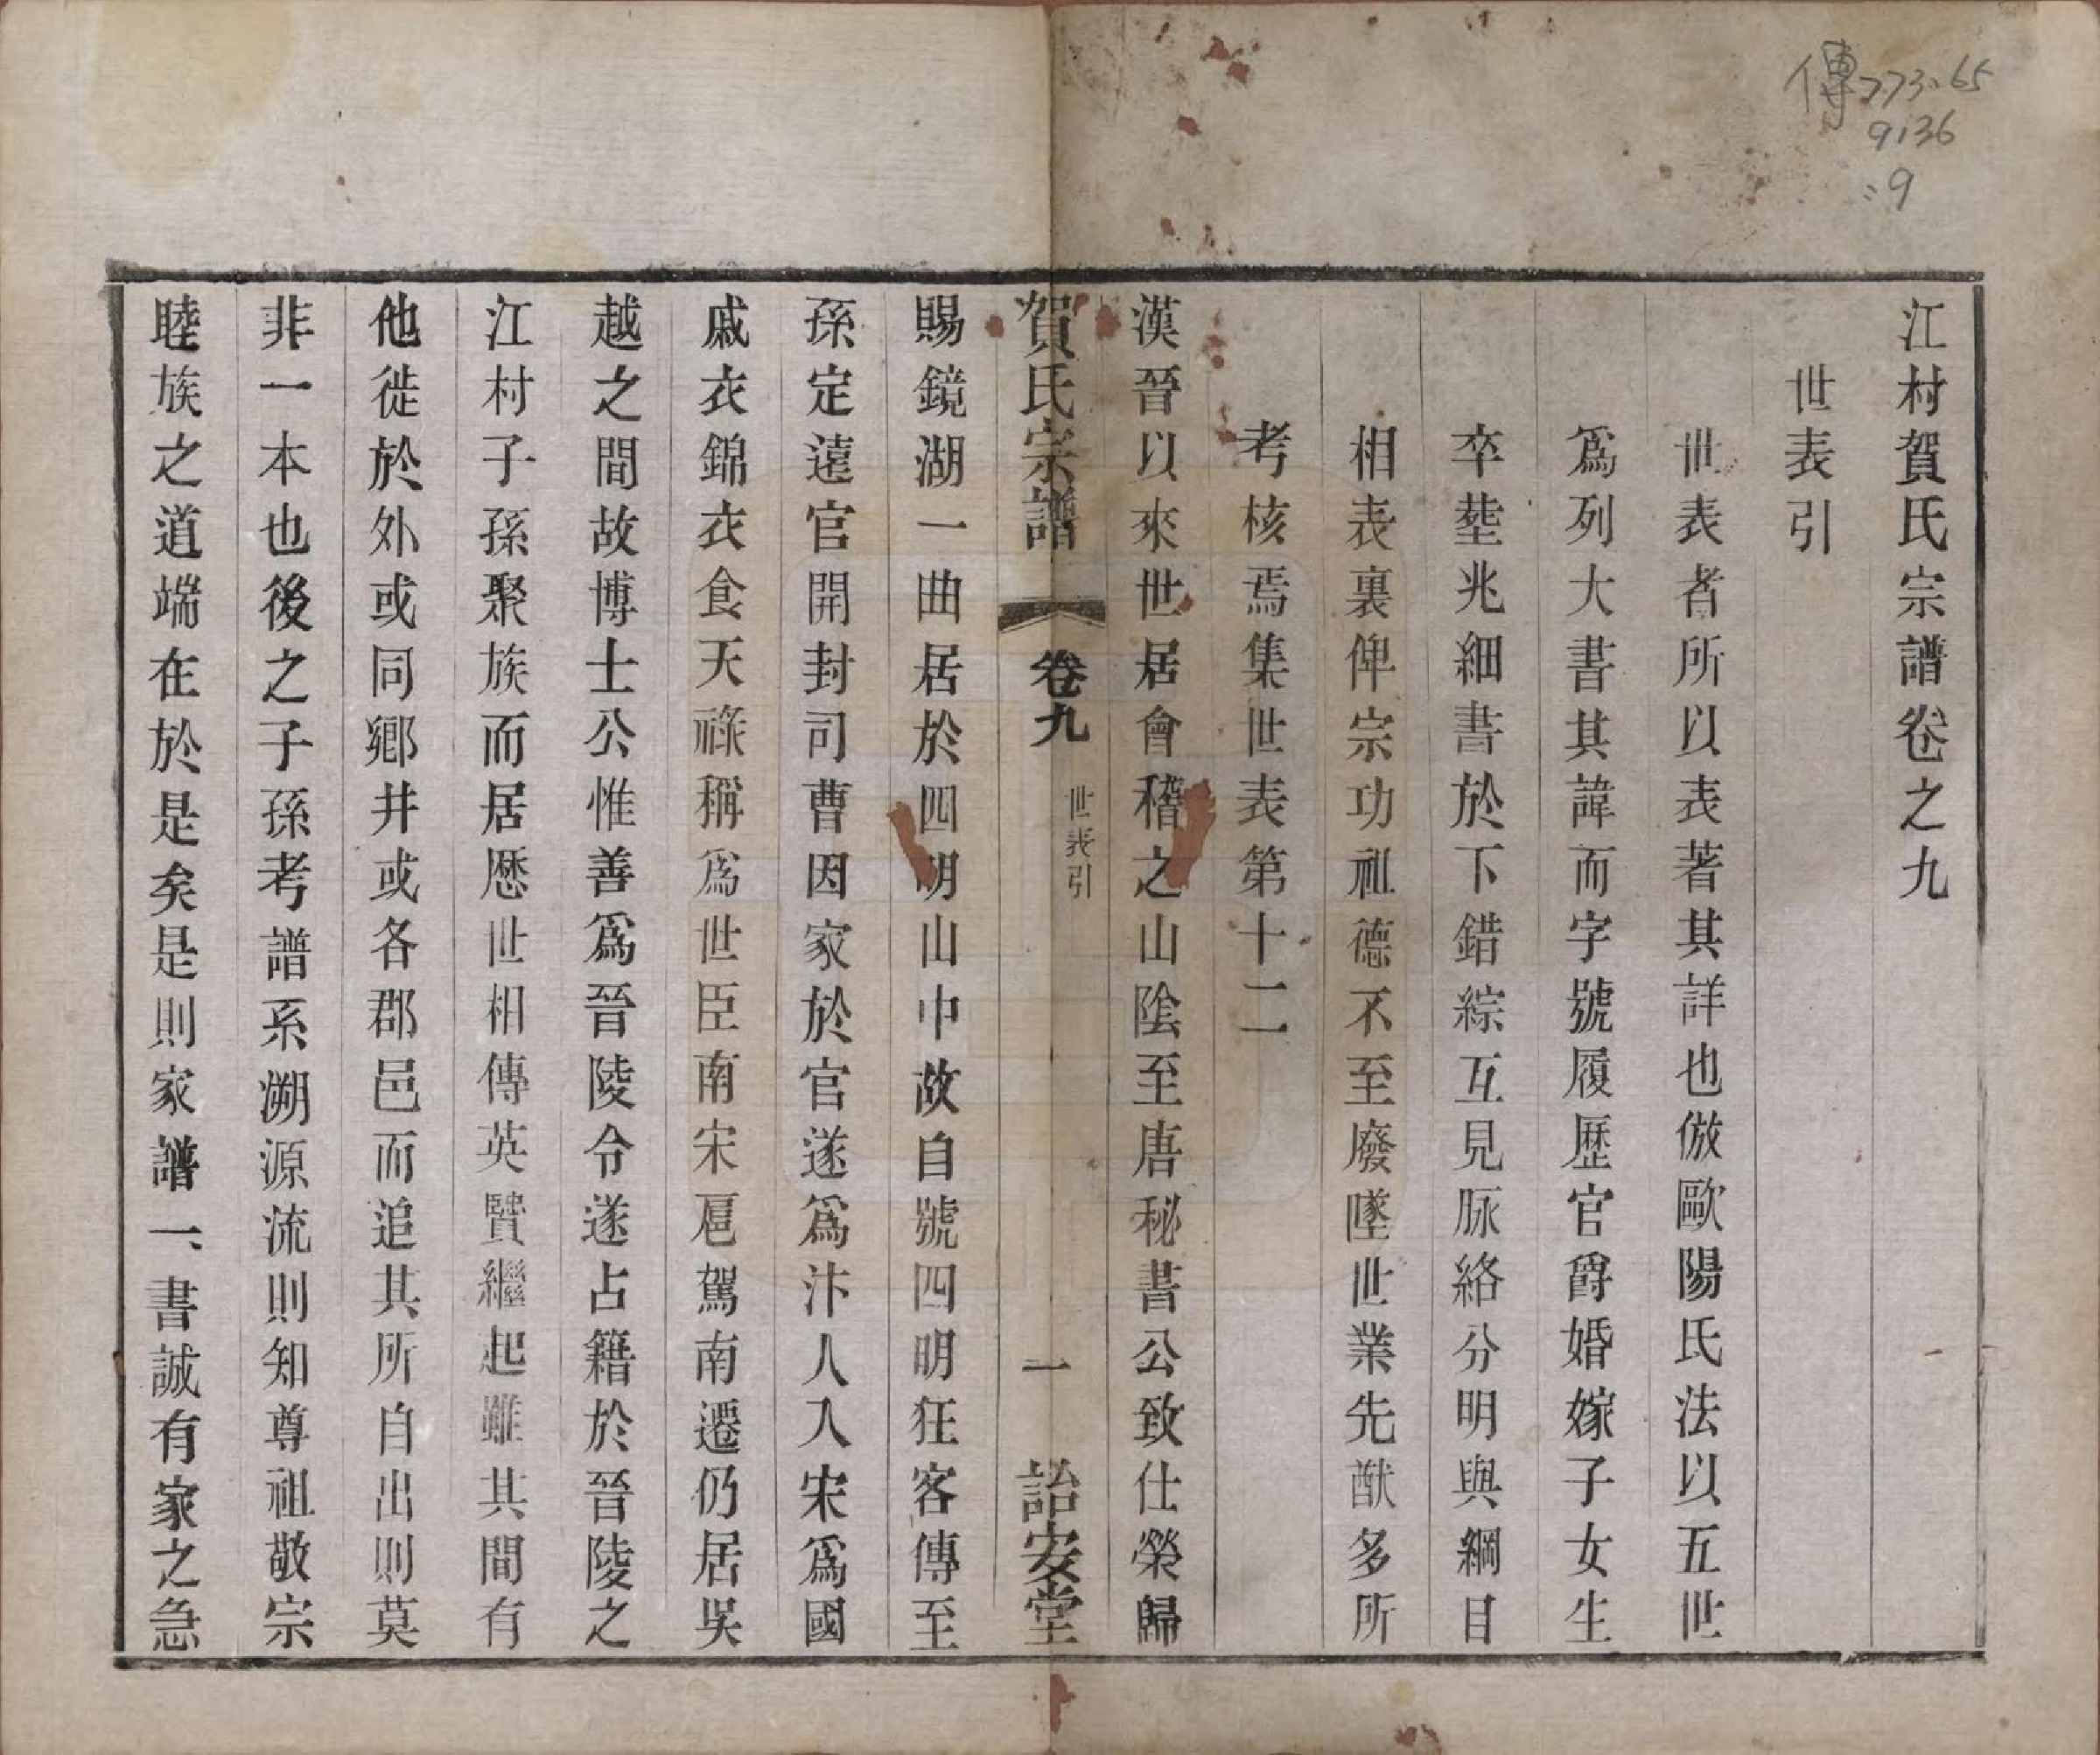 江村賀氏宗譜卷之九
世表引
世表者所以表著其詳也倣歐陽氏法以五世
爲列大書其諱而字號履歷官爵婚嫁子女生
卒塟兆細書於下錯綜互見脉絡分明與綱目
相表裏俾宗功祖德不至廢墜世業先猷多所
考核焉集世表第十二
漢晉以來世居會稽之山陰至唐秘書公致仕榮歸
賀氏宗譜 卷九 世表引 一 詒安堂
賜鏡湖一曲居於四明山中故自號四明狂客傳至
孫定遠官開封司曹因家於官遂爲汴人入宋爲國
戚衣錦衣食天祿稱爲世臣南宋扈駕南遷仍居吳
越之間故博士公惟善爲晉陵令遂占籍於晉陵之
江村子孫聚族而居歷世相傳英賢繼起雖其間有
他徙於外或同鄉井或各郡邑而追其所自出則莫
非一本也後之子孫考譜系溯源流則知尊祖敬宗
睦族之道端在於是矣是則家譜一書誠有家之急
傳773.65
9136
:9